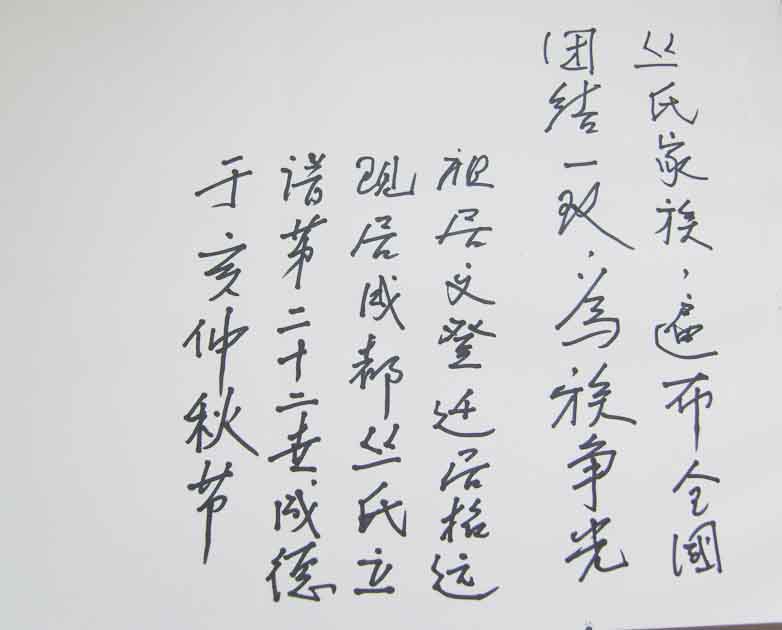 丛氏家族，遍布全國
团结一致，为族争光
祖居文登迁居格远
现居成都丛氏立
谱第二十二世成德
于亥仲秋节